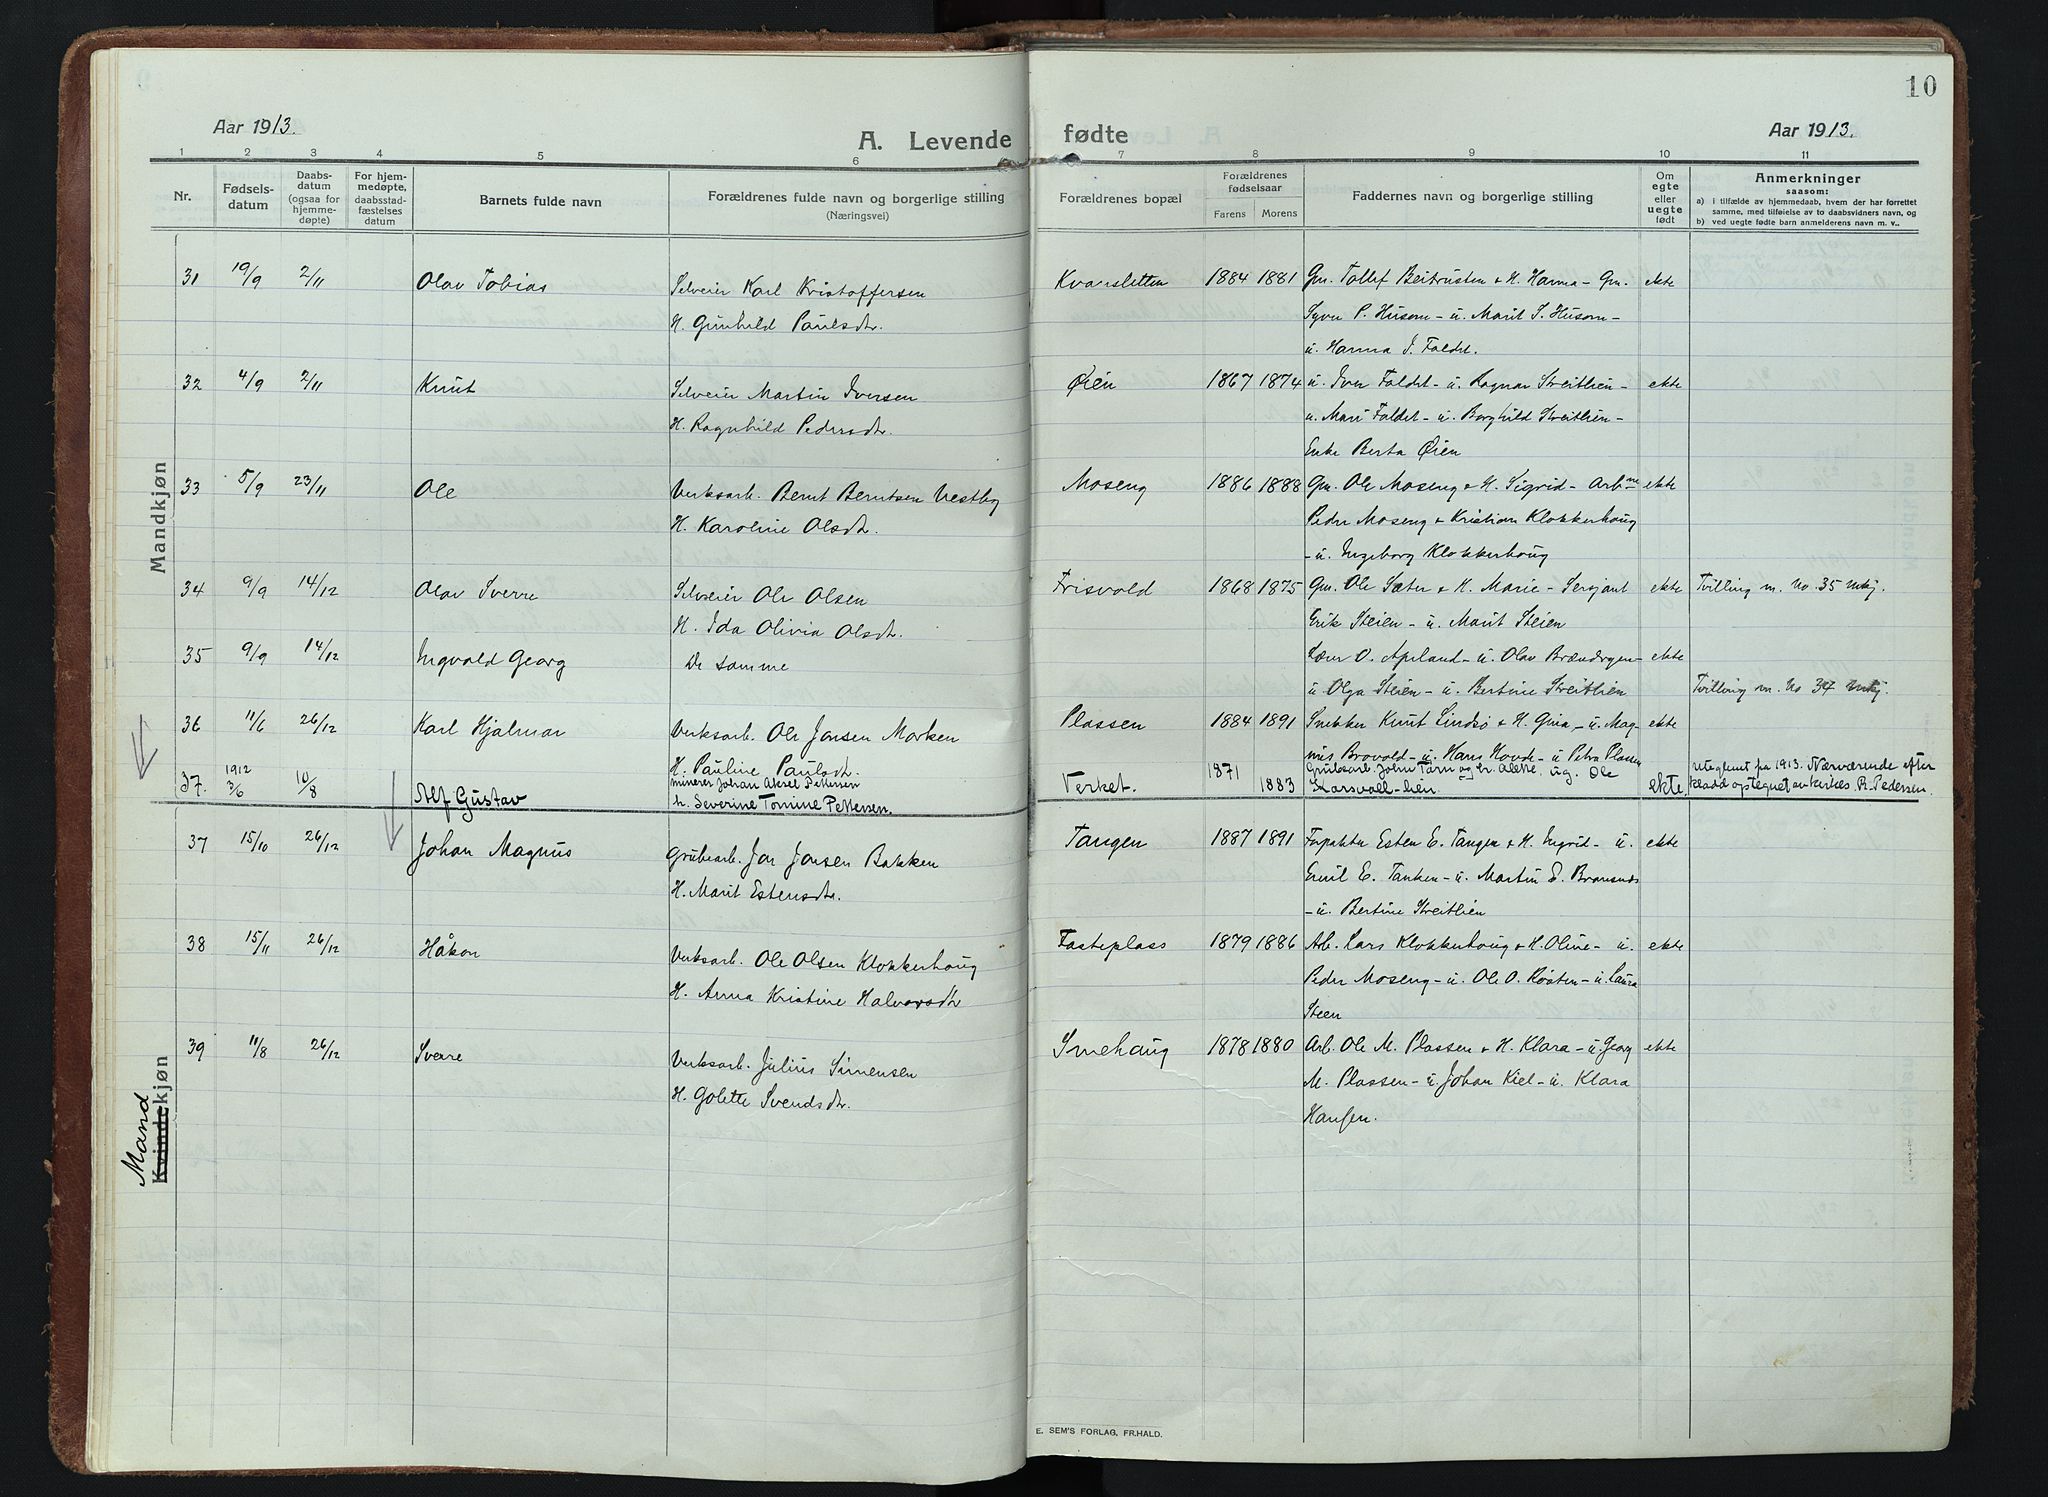 10
Aar 1913.
A. Levende fødte
Aar 1913.
1 2 3 4 5 6 7 8 9 10 11
Nr.
Fødselsdatum
Daabsdatum (ogsaa for hjemmedøpte)
For hjemmedøpte, daabsstadfæstelses datum
Barnets fulde navn
Forældrenes fulde navn og borgerlige stilling
(Næringsvei)
Forældrenes bopæl
Forældrenes fødselsaar
Farens Morens
Faddernes navn og borgerlige stilling
Om egte eller uegte født
Anmerkninger
saasom:
a) i tilfælde av hjemmedaab, hvem der har forrettet
samme, med tilføielse av to daabsvidners navn, og
b) ved uegte fødte barn anmelderens navn m. v..
Mandkjøn
31 19/9 2/11 Olav Tobias Selveier Karl Kristoffersen Kvarsletten 1884 1881 Gm. Tollef Beitrusten & H. Hanna - Gm. ekte
H. Gunhild Paulsdtr. Syver P. Husom - u. Marit S. Husom -
u. Hanna J. Faldet.
32 4/9 2/11 Knut Selveier Martin Iversen Øien 1867 1874 u. Iver Faldet - u. Ragnar Streitlien - ekte
H. Ragnhild Pedersdtr. u. Mari Faldet - u. Borghild Streitlien -
Enke Berta Øien
33 5/9 23/11 Ole Verksarb. Bernt Berntsen Vestby Moseng 1886 1888 Gm. Ole Moseng & H. Sigrid - Arbne ekte
H. Karoline Olsdtr. Peder Moseng & Kristian Klokkerhaug
- u. Ingeborg Klokkerhaug
34 9/9 14/12 Olav Sverre Selveier Ole Olsen Frisvold 1868 1875 Gm. Ole Sæter & H. Marie - Sersjant ekte Tvilling m. No. 35 mkj.
H. Ida Olivia Olsdtr. Erik Steien - u. Marit Steien
35 9/9 14/12 Ingvald Georg De samme Lærer O. Aperland - u. Olav ekte
u Olga Steien - u. Bertine Streitlien Tvilling m. No 34 mkj.
36 11/6 26/12 Karl Hjalmar Verksarb. Ole Jonsen Morken Plassen 1884 1891 Snekker Knut Lindsø & H. Gina - u. Mag- ekte
H. Pauline Paulsdtr. nus Brovold - u. Hans Hovde - u Petra Plassen
37. 1912 3/6 10/8 Alf Gustav minerer Johan Aksel Pettersen Verket. 1871 1883 Grubearb. John Tørn og h. ug. Ole ekte. uteglemt paa 1913. Nærværende efter
h. Severine Tomine Pettersen. Korsvoll-lien kladd optegnet av R. Pedersen.
37 15/10 26/12 Johan Magnus Grubearb. Jon Jonsen Bakken Tangen 1887 1891 Forpakter Esten E. Tangen & H. Ingrid - u. ekte
H. Marit Estensdtr. Emil E. Tanken - u. Martin E.
- u. Bertine Streitlien
38 15/11 26/12 Håkon Verksarb. Ole Olsen Klokkerhaug Fasteplass 1879 1886 Arb. Lars Klokkerhaug & H. Oline - u. ekte
H. Anna Kristine Halvorsdtr Peder Moseng - u. Ole O. Røsten - u. Laura
Steen
39 11/8 26/12 Sverre Verksarb. Julius Simensen Smehaug 1878 1880 Arb. Ole M. Plassen & H. Klara - u. Georg ekte
H. Golette Svendsdtr. M. Plassen - u. Johan Kiel - u. Klara
Hansen.
Mand
Kvindekjøn
E. SEM'S FORLAG, FR.HALD.